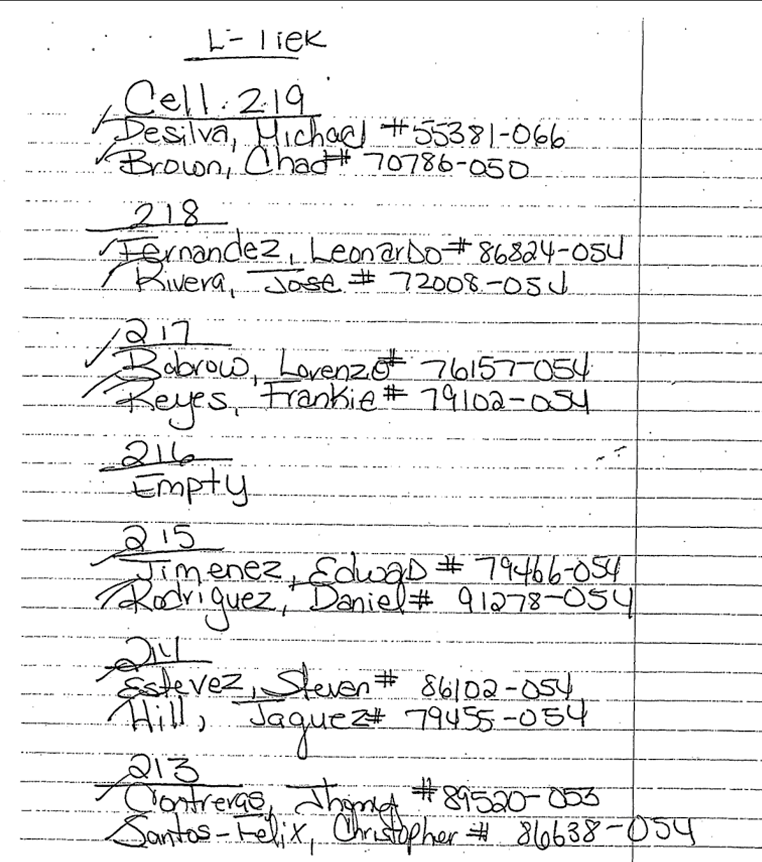 L- Tier
Cell 219
Desilva, Michael #55381-066
Brown, Chad# 70786-050
218
Fernandez, Leonardo# 86824-054
Rivera, Jose # 72008-054
217
Babrow, Lorenzo# 76157-054
Reyes, Frankie# 79102-054
216
Empty
215
Jimenez, Edwad # 79466-054
Rodriguez, Daniel# 91278-054
214
Estevez, Steven# 86102-054
Hill, Jaquez# 79455-054
213
Contreras, #89520-053
Santos-Felix, Christopher # 86638-054